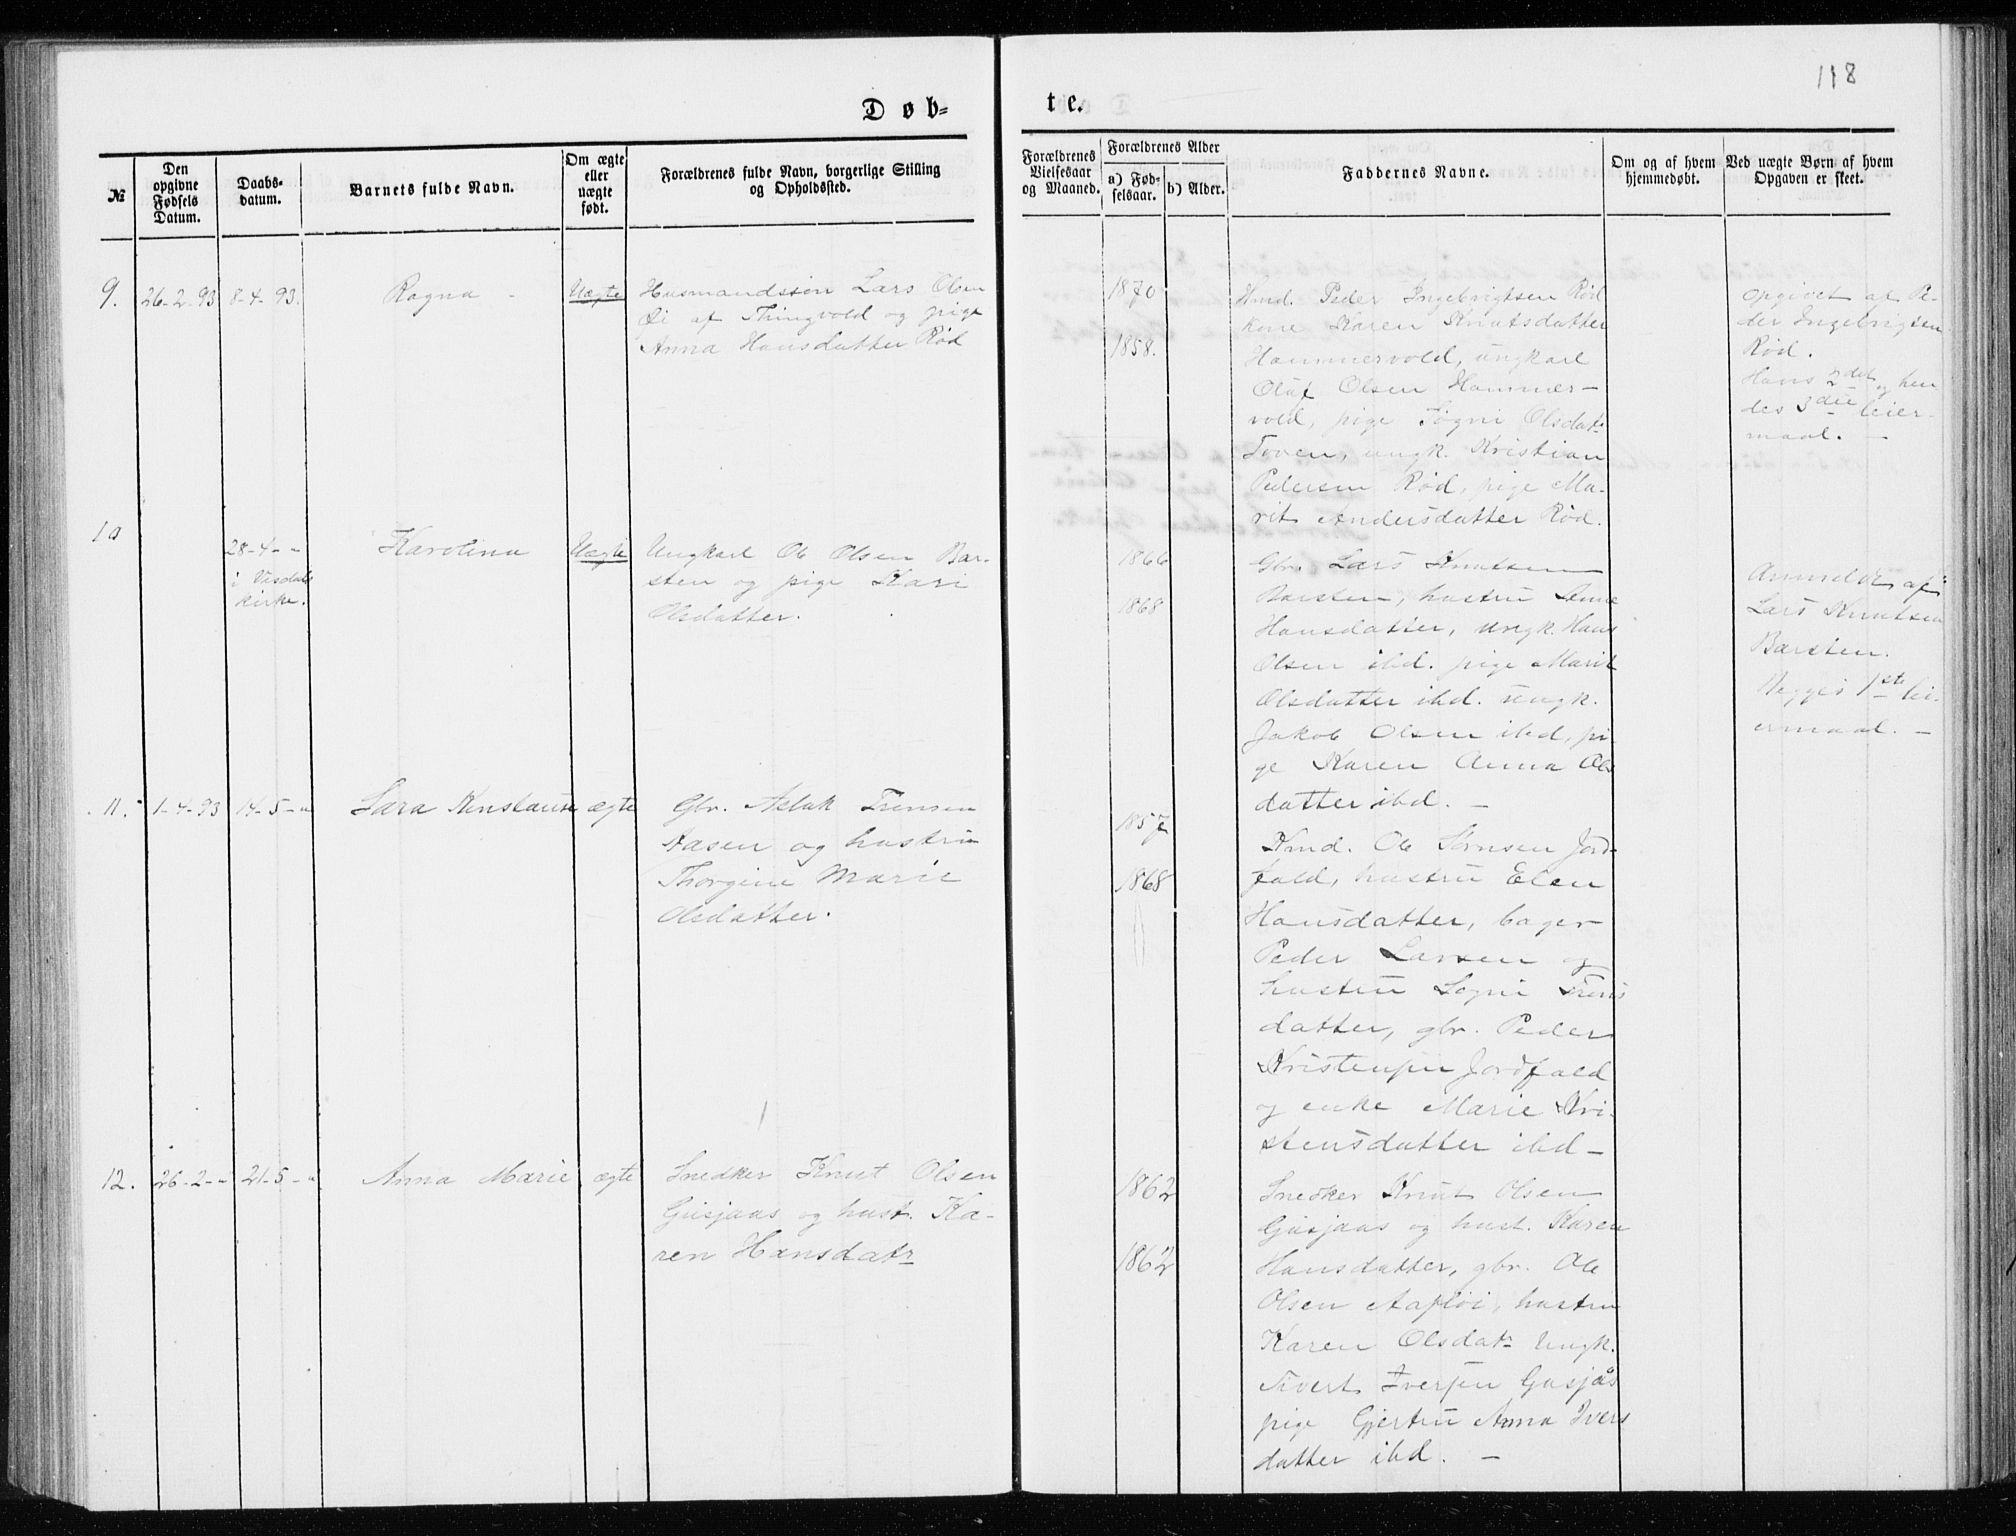 118
Døb-
te.
№
Den opgivne Fødsels Datum.
Daabs-datum.
Barnets fulde Navn.
Om ægte eller uægte født.
Forældrenes fulde Navn, borgerlige Stilling og Opholdssted.
Forældrenes Vielsesaar og Maaned.
Forældrenes Alder
a) Fød-selsaar.
b) Alder.
Faddernes Navne.
Om og af hvem hjemmedøbt.
Ved uægte Børn af hvem Opgaven er skeet.
9.
26-2-93
8-4-93.
Ragna -
Uægte
Husmandssøn Lars Olsen
Øi af Thingvold og pige
Anna Hansdatter Rød
1870
1858.
Hmd. Peder Ingebrigtsen Rød
kone Karen Knutsdatter
Hammervold, ungkarl
Oluf Olsen Hammer-
vold, pige Søgni Olsdatr
Toven, ungk. Kristian
Pedersen Rød, pige Ma-
rit Andersdatter Rød.
Opgivet af Pe-
der Ingebrigtsen
Rød.
Hans 2det og hen
des 3die leier-
maal. -
10
28-4-"
i Visdals
kirke.
Karolina
Uægte
Ungkarl Ole Olsen Bar-
sten og pige Kari
Olsdatter.
1866
1868
Gbr. Lars Knutsen
Barsten, hustru Anne
Hansdatter, ungk. Hans
Olsen ibd. pige Marit
Olsdatter ibd. ungk.
Jakob Olsen ibd, pi-
ge Karen Anna Ols
datter ibd. -
Anmeldt af
Lars Knutsen
Barsten.
Begges 1ste lei-
ermaal. -
11.
1-4-93
14-5-"
Sara Konstanse
ægte
Gbr. Aslak Trensen
Aasen og hustru
Thorgine Marie
Olsdatter.
1857
1868
Hmd. Ole Sørnsen Jord-
fald, hustru Elen
Hansdatter, bager
Peder Larsen og
hustru Søgni Trens
datter, gbr. Peder
Kristensen Jordfald
og enke Marie Kri-
stensdatter ibd-
12.
26-2-"
21-5-"
Anna Marie
ægte
Snedker Knut Olsen
Gusjaas og hust. Ka-
ren Hansdatr
1862
1862
Snedker Knut Olsen
Gusjaas og hust. Karen
Hansdatter, gbr. Ole
Olsen hustru
Karen Olsdatr Ungk.
Sivert Iversen Gusjås
pige Gjertru Anna Ivers
datter ibd. -